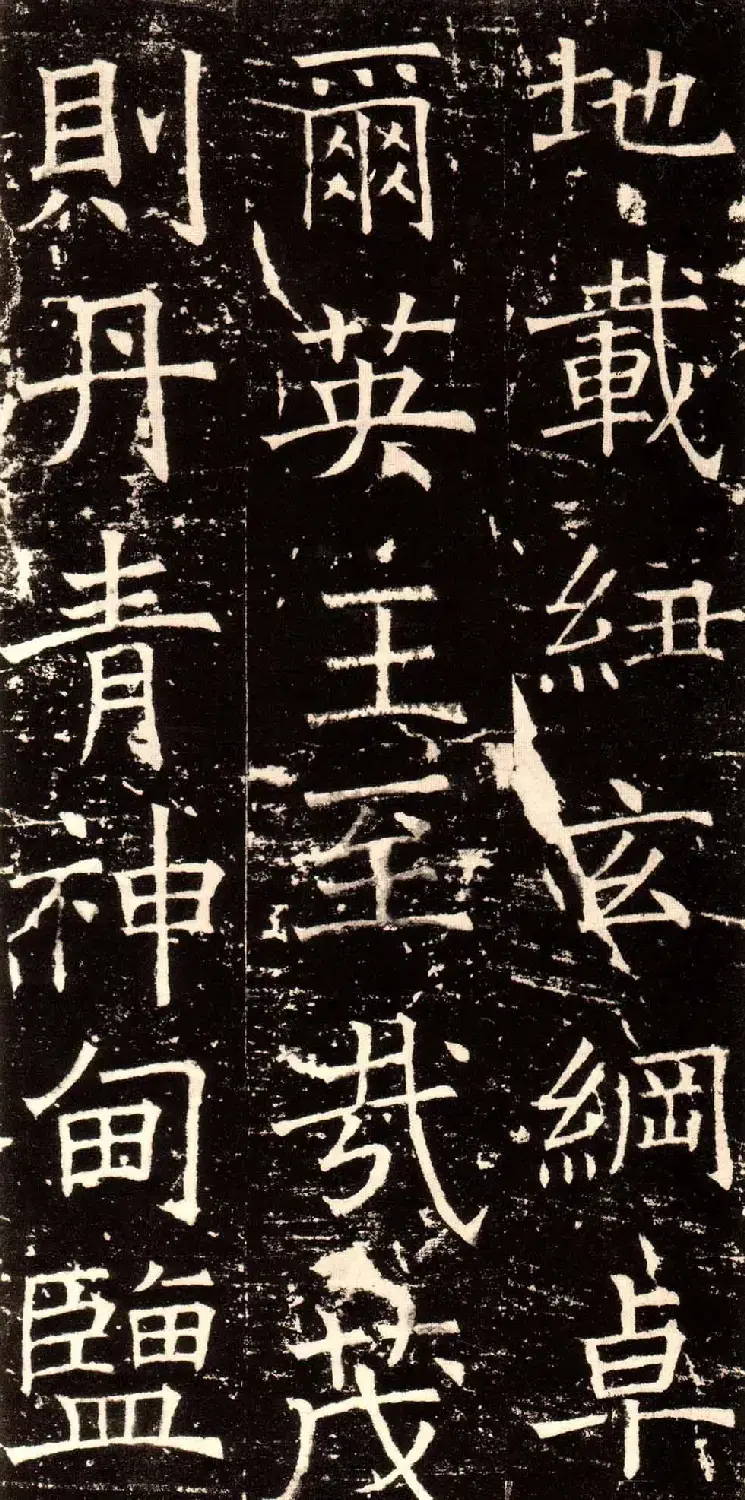 地載紐玄綱卓
爾英王至哉茂
則丹青神甸鹽